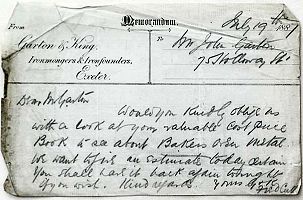 Memorandum.
July 19th 1887
From
Garton & King,
Ironmongers & Ironfounders,
Exeter.
To
Mr John Garton
75 Holloway St
Dear Mr Garton
Would you kindly oblige us
with a look at your valuable cost price
Book to see about Bakers Oven Metal.
We want to give an estimate today
You shall have it back again tonight
if you wish. Kind regards Yours